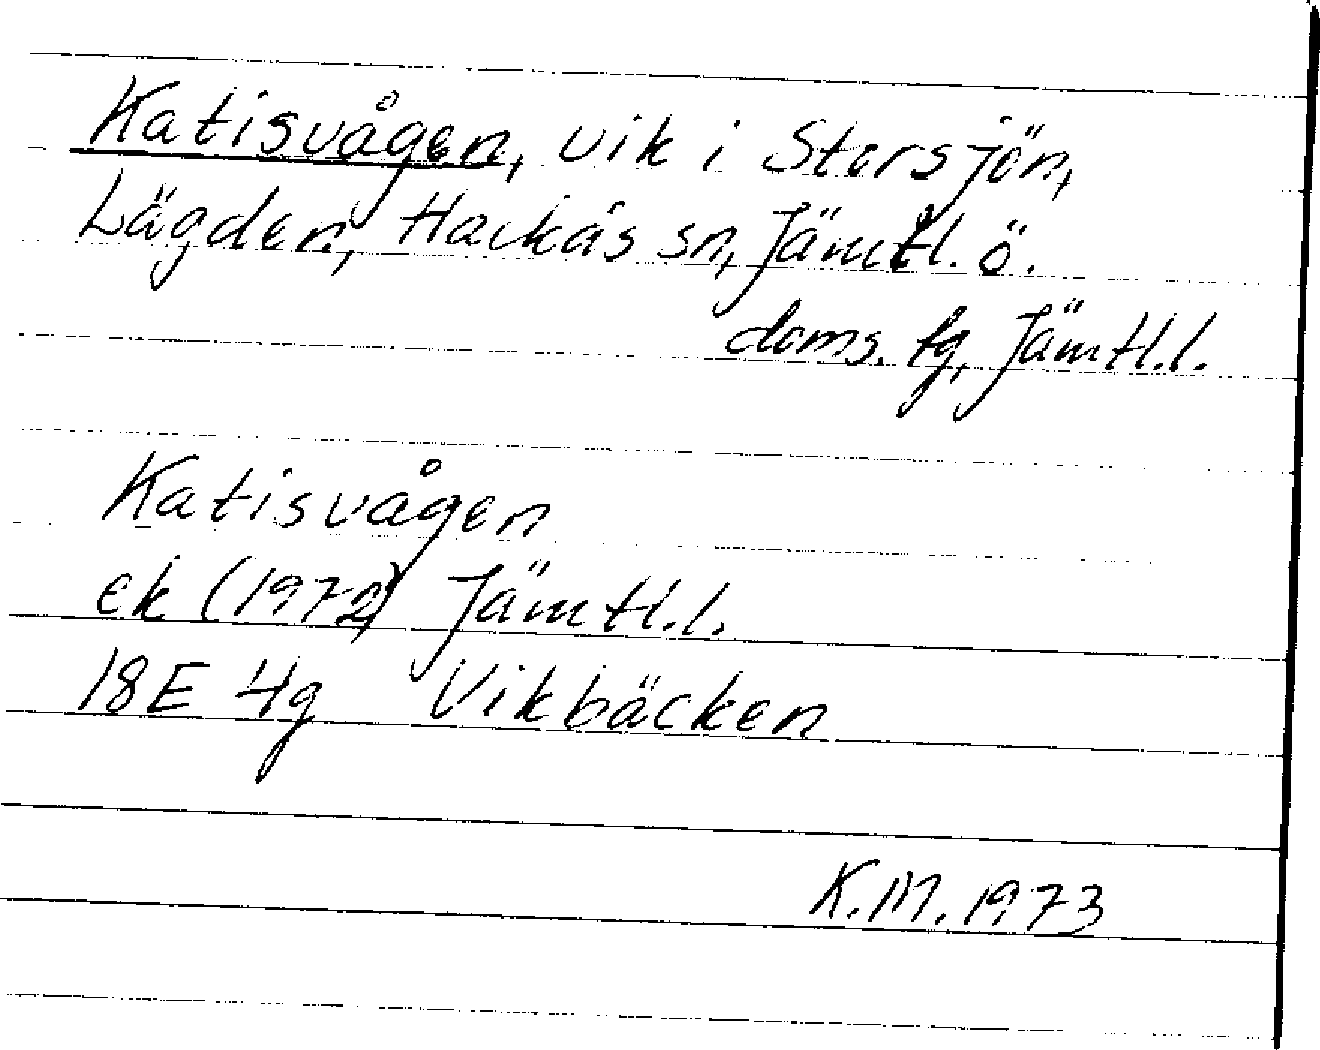 Katisvågen, vik i Storsjön,
Lägden, Hackås sn, Jämtl. ö.
doms. fg, Jämtl.l.
Katisvågen
ek (1972) Jämtl.l.
18E 4g Vikbäcken
K.M. 1973